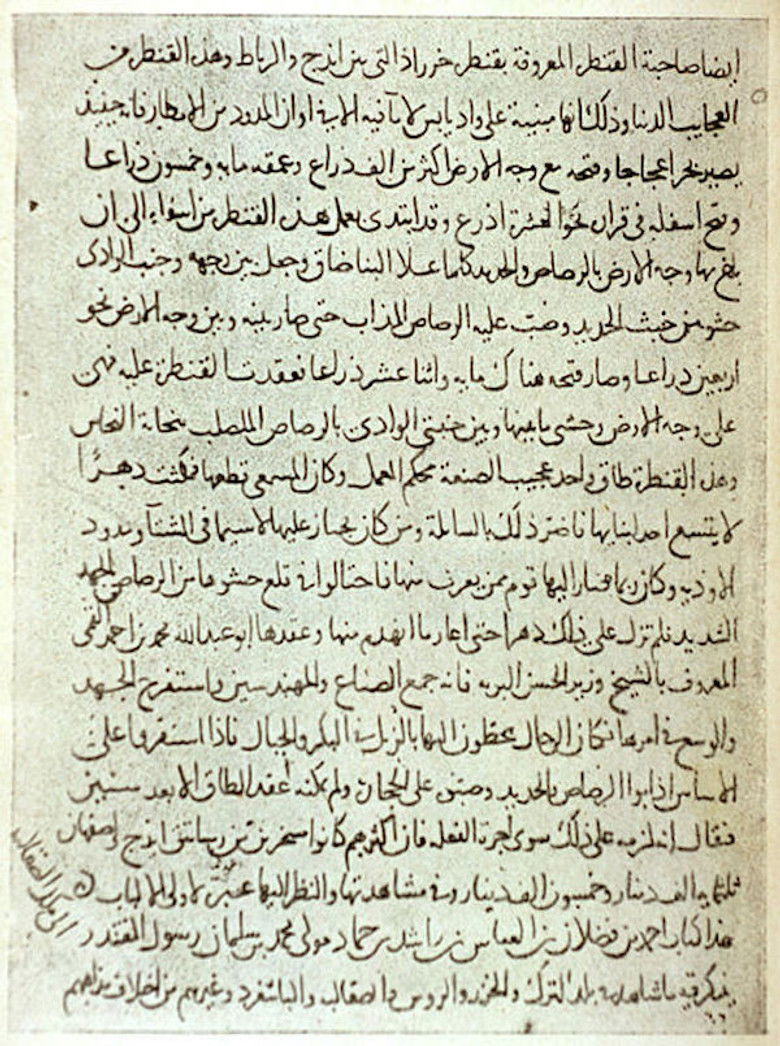 ايضا صاحبة القنطرة المعروفة بقنطرة خرزاذ التى بين ايذج والرباط وهذه القنطرة من
العجايب الدنيا وذلك انها مبنية على واد يابس لا ماء فيه الا فى اوان المدود من الامطار فانه حينيذ
يصير بحرا عجاجا وفتحه مع وجه الارض اكثر من الف ذراع وعمقه مايه وخمسون ذراعا
وفتح اسفله فى قراره نحو العشرة اذرع وقد ابتدى بعمل هذه القنطرة من اسفله الى ان
بلغ بها وجه الارض بالرصاص والحديد كلما علا البنا ضاق وجعل بين وجهه وجنب الوادى
حشو من خبث الحديد وصب عليه الرصاص المذاب حتى صار بينه وبين وجه الارض نحو
اربعين ذراعا وصار فتحه هناك مايه واثنا عشر ذراعا فعقدت القنطرة عليه فهى
على وجه الارض وحشى ما بينها وبين جنبتى الوادى بالرصاص الملصلب بنحاتة النحاس
وهذه القنطرة طاق واحد عجيب الصنعة محكم العمل وكان المسمعى قطعها فمكثت دهرًا
لا يتسع احد لبنايها فاضر ذلك بالسابلة ومن كان يجتاز عليها لا سيما فى الشتآ ومدود
الاوديه وكان ربما صار اليها قوم ممن يقرب منها فاحتالوا فى قلع حشوها من الرصاص بالجهد
الشديد فلم تزل على ذلك دهرا حتى اعاد ما انهدم منها وعقدها ابو عبد الله محمد بن احمد القمى
المعروف بالشيخ وزير الحسن البويه فانه جمع الصناع والمهندسين واستفرغ الجهد
والوسع فى امرها فكان الرجال يحطون اليها بالزبل فى البكر والحبال فاذا استقروا على
الاساس اذابوا الرصاص والحديد وصبوه على الحجارة ولم يمكنه عقد الطاق الا بعد سنين
فيقال انه لزمه على ذلك سوى اجرة الفعله فان اكثرهم كانوا مسخرين من رساتيق ايذج واصفهان
ثلثمايه الف دينار وخمسون الف دينار وفى مشاهدتها والنظر اليها عبرة لاولى الالباب
هذا كتاب احمد بن فضلان بن العباس بن راشد بن حماد مولى محمد بن سلمان رسول المقتدر
الى ملك الصقالبه
يذكر فيه ما شاهد فى بلد الترك والخزر والروس والصقالبه والباشغرد وغيرهم من اختلاف مذاهبهم